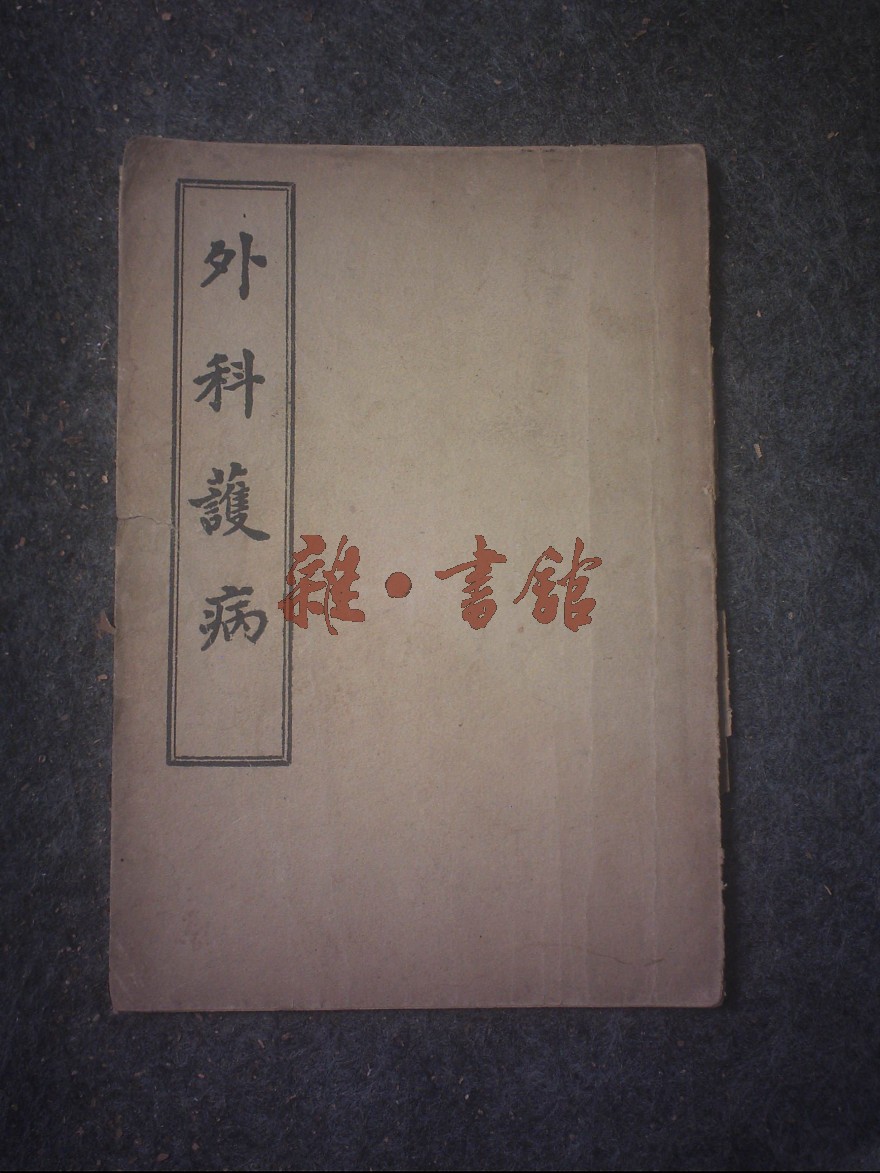 外科䕶病
雜·書館